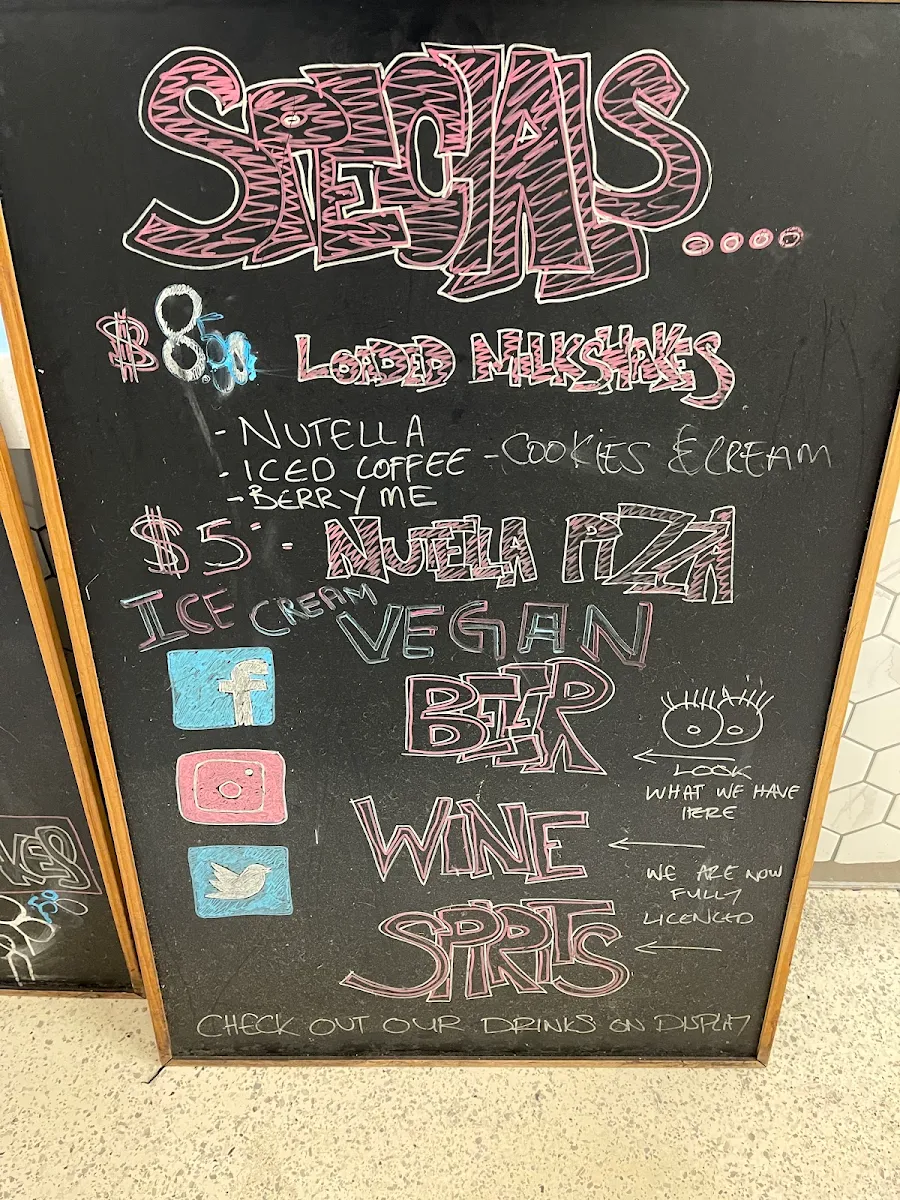 SPECIALS....
$8.50 LOADED MILKSHAKES
- NUTELLA
- ICED COFFEE - COOKIES & CREAM
- BERRY ME
$5 - NUTELLA PIZZA
ICE CREAM VEGAN
f
BEER
LOOK
WHAT WE HAVE
HERE
WINE
WE ARE NOW
FULLY
LICENCED
SPIRITS
CHECK OUT OUR DRINKS ON DISPLAY